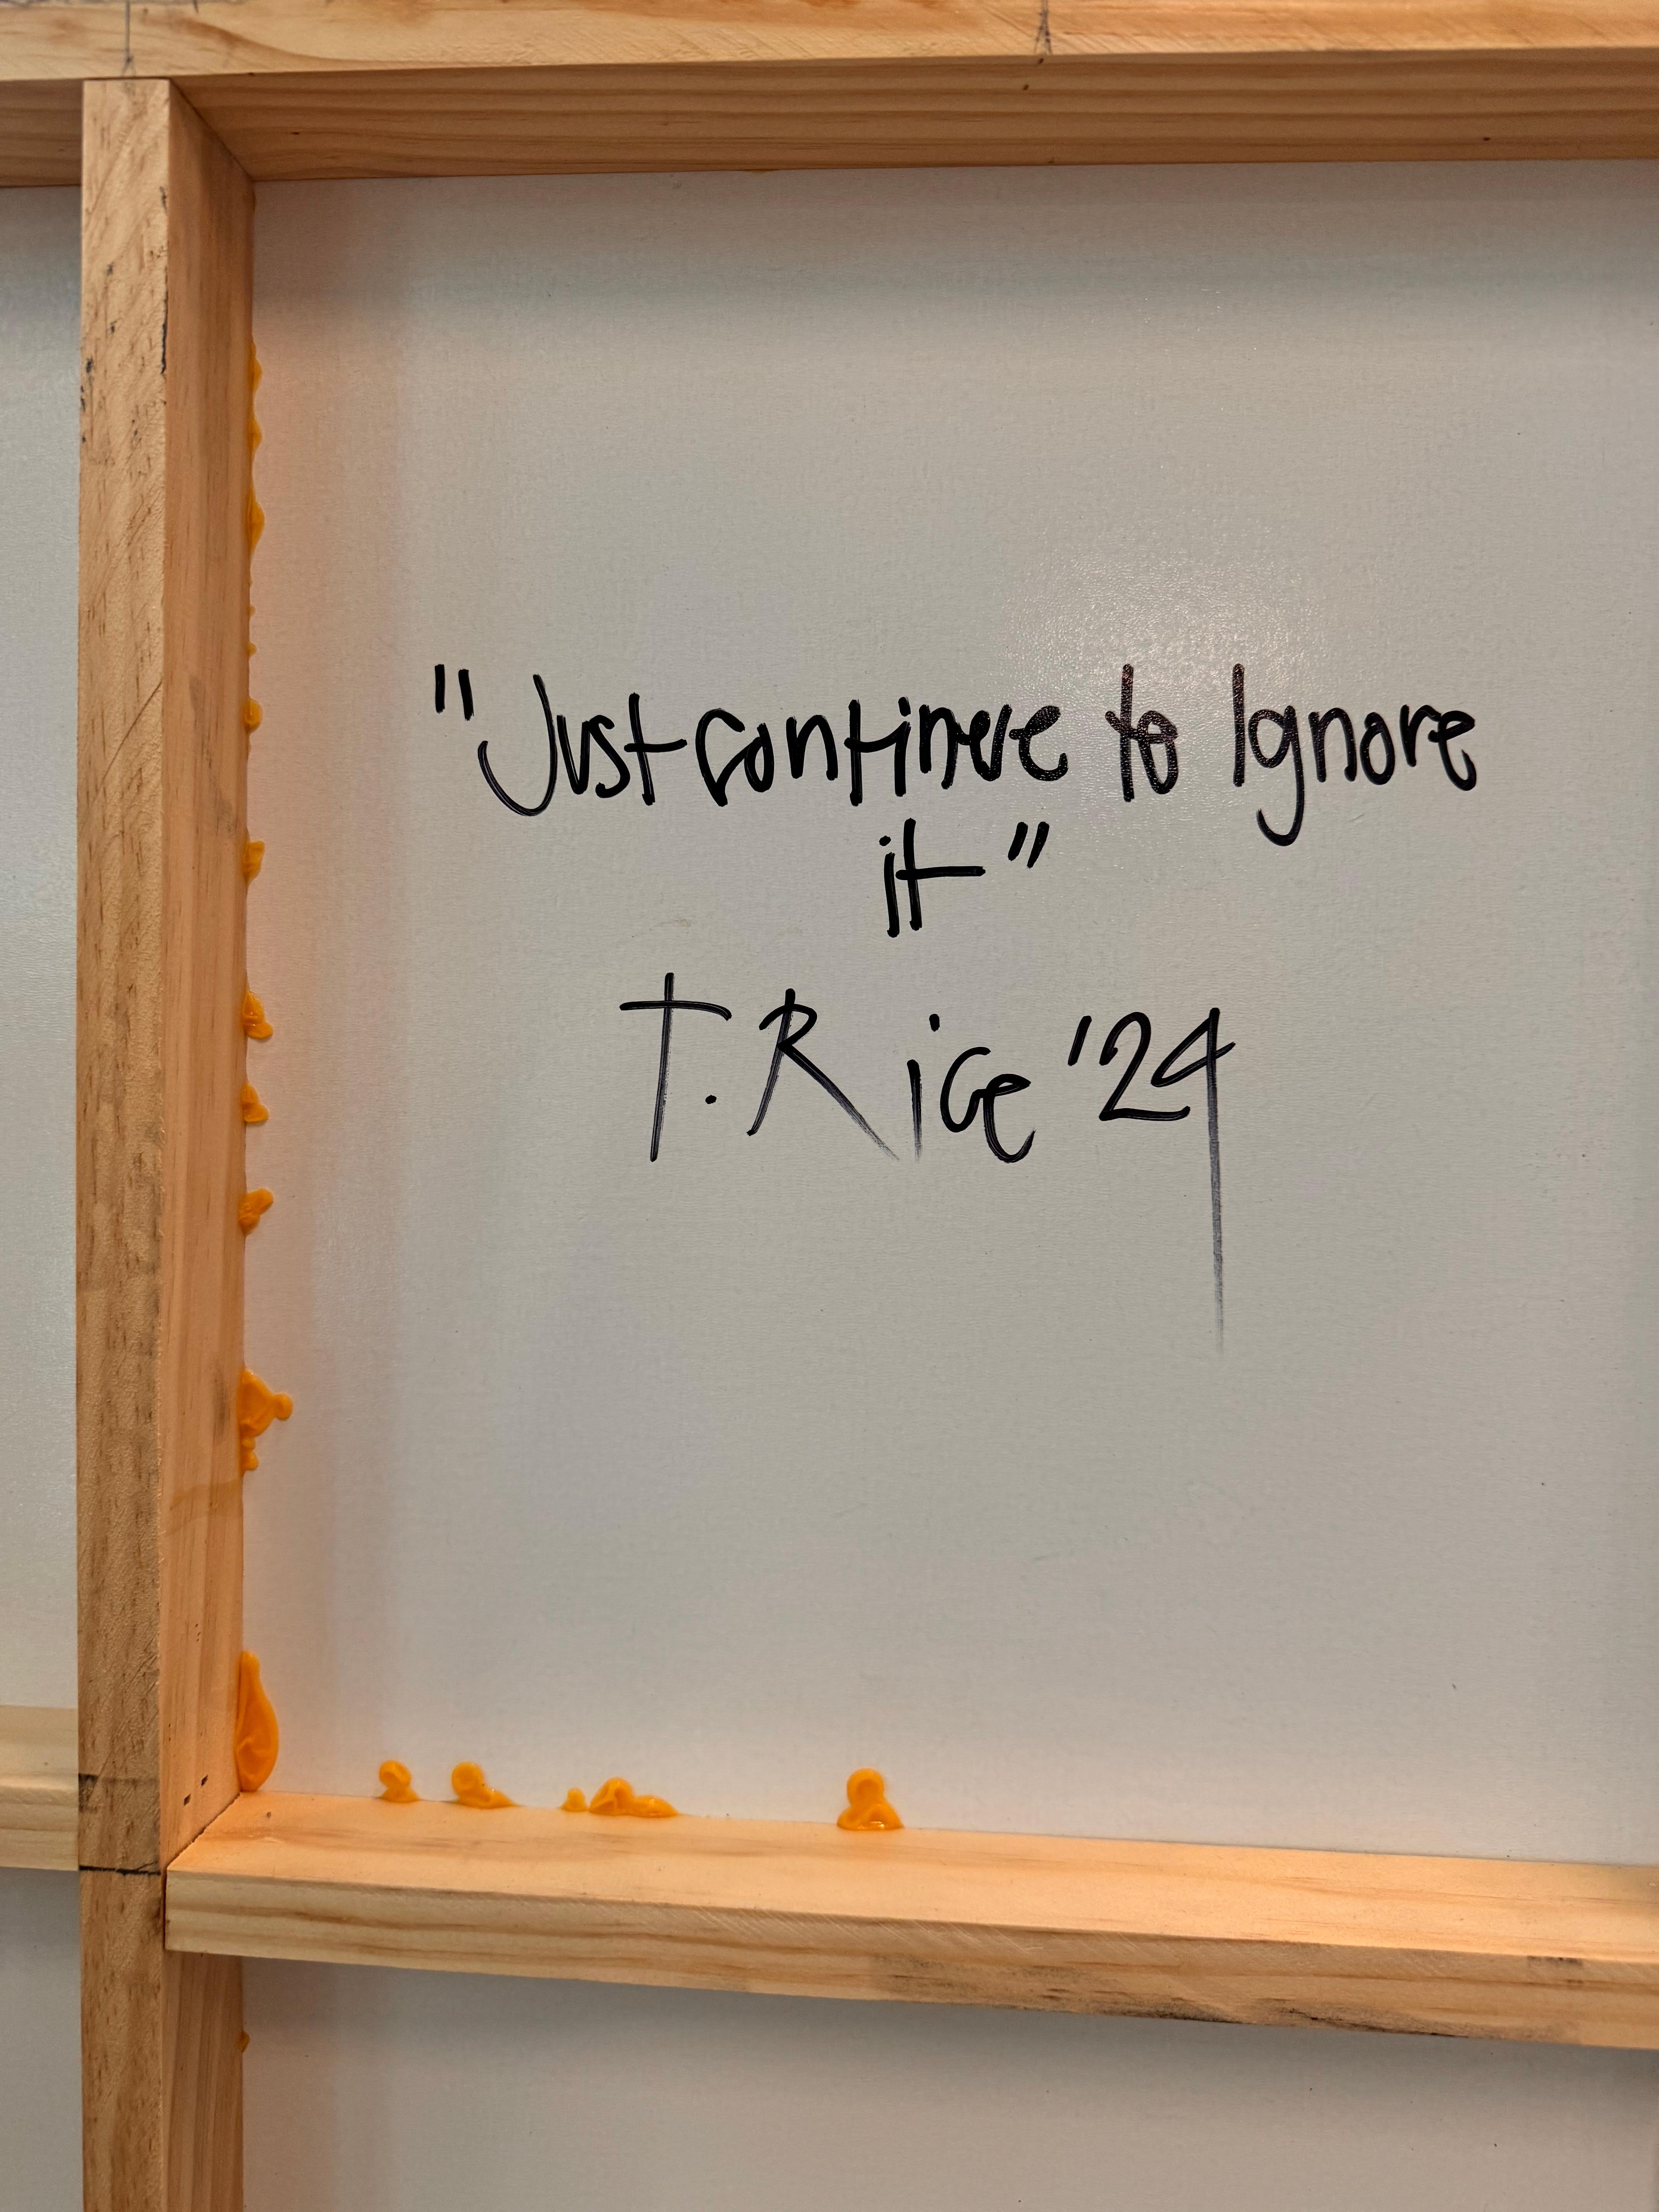 "Just continue to Ignore
it"
T. Rice '24